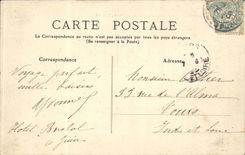 CARTE POSTALE
La Correspondance au recto n'est pas acceptée par tous les pays étrangers
(Se renseigner à la Poste)
Correspondance
Adresse
Voyage parfait,
mille baisers
Hôtel
6 Juin
Monsieur
33 rue de l'Alma
Tours
Indre et Loire